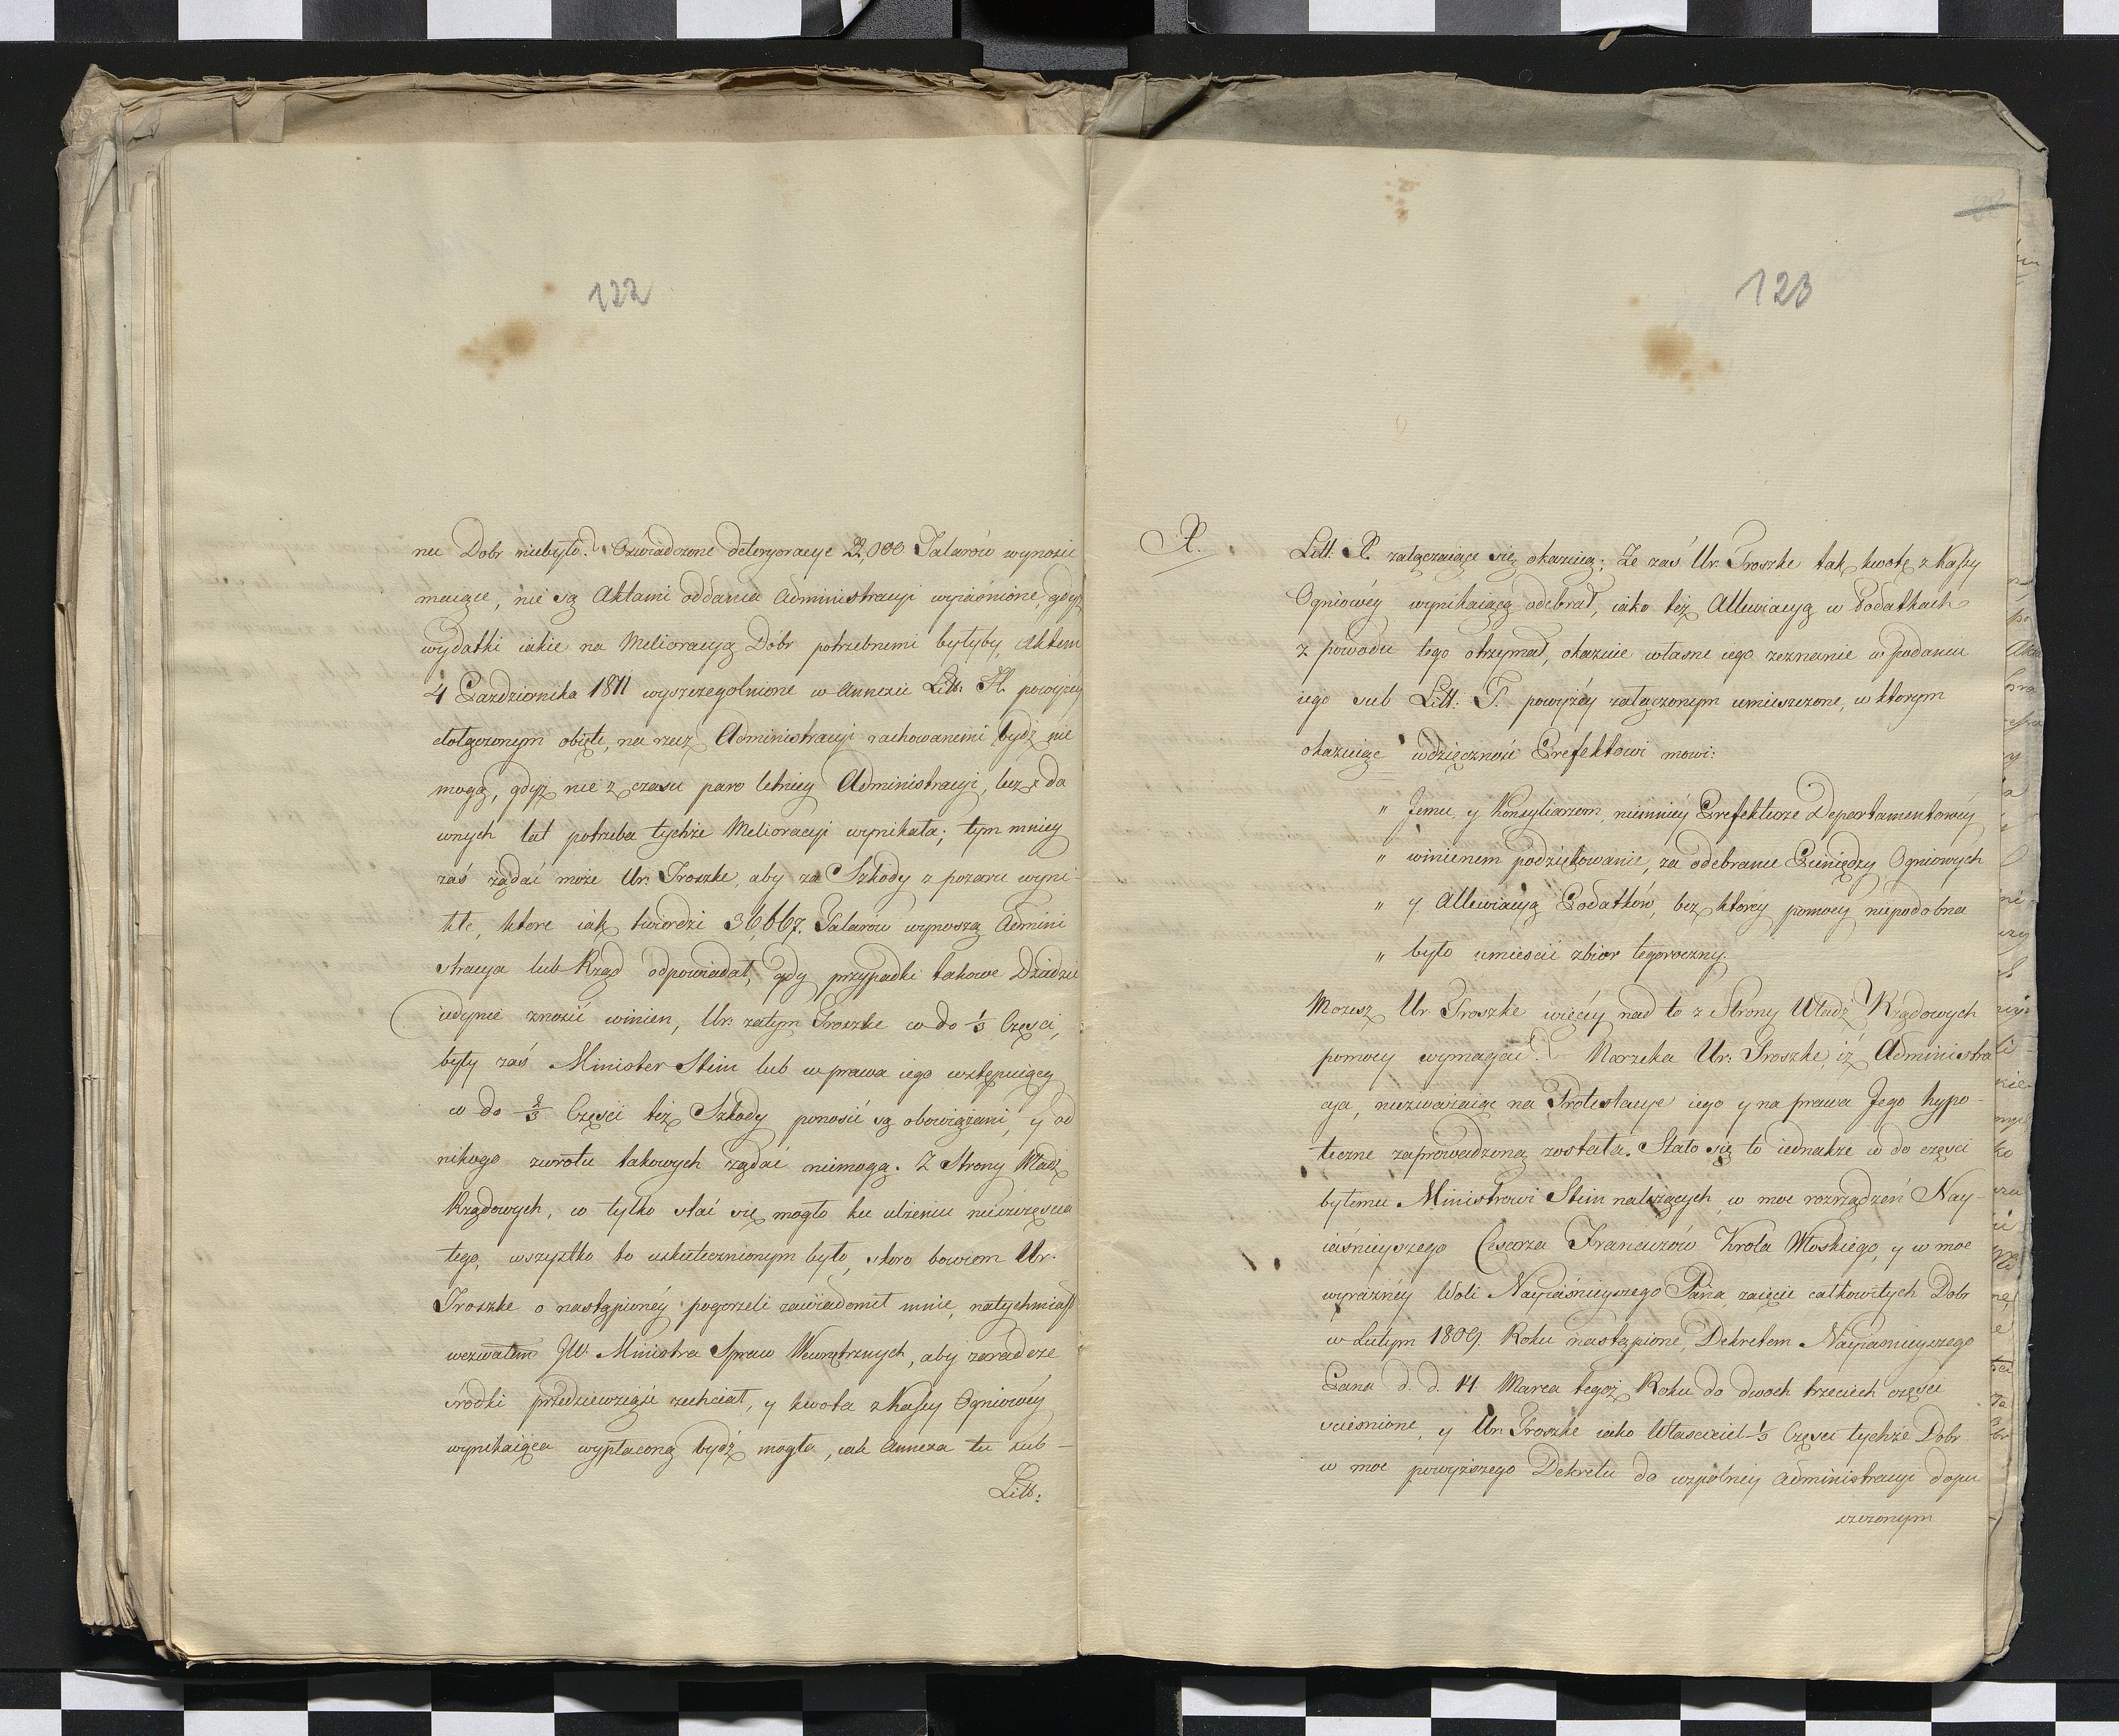 122
nu Dobr niebyło? Oświadczone deteryoracye 22,000 Talarów wynosić
maiące, nie są Aktami oddania Administracyi wyiaśnione, gdyż
wydatki iakie na Melioracyą Dóbr potrzebnemi byłyby, Aktem
4 Pazdziernika 1811 wyszczegolnione w Annexie Litt: H. powyżey
dołączonym obięte, na rzecz Administracyi rachowanemi bydź nie
mogą, gdyż nie z czasu paro letniey Administracyi, lecz z da
wnych lat potrzeba tychże Melioracyi wynikała; tym mniey
zaś żądać może Ur: Troszke, aby za Szkody z pozaru wyni-
kłe, ktore iak twierdzi 36,667. Talarów wynoszą Admini
stracya lub Rząd odpowiadał, gdy przypadki takowe Dziedzic
iedynie znosić winien, Ur: zatym Troszke co do 1/3 Częsci,
były zaś Minister Stein lub w prawa iego wstępuiący
co do 2/3 Częsci też Szkody ponosić są obowiązani, y od
nikogo zwrotu takowych żądać niemogą. Z Strony Władz
Rządowych, co tylko stać się mogło ku ulżeniu nieszczęscia
tego, wszystko to uskutecznionym było, skoro bowiem Ur:
Troszke o nastąpioney pogorzeli zawiadomił mnie, natychmiast
wezwałem JW. Ministra Spraw Wewnętrznych, aby zaradcze
środki przedsiewziąść zechciał, y kwota z Kassy Ogniowéy
wynikaiąca wypłaconą bydź mogła, iak Annexa tu sub-
Litt:
123
P.
Litt. P. załączaiące się okazuią; Ze zaś Ur. Troszke tak kwotę z Kassy
Ogniowéy wynikaiącą odebrał, iako też Allewiacyą w Podatkach
z powodu tego otrzymał, okazuie własne iego zeznanie w Podaniu
iego sub Litt: T. powyżéy załączonym umieszczone, w ktorym
okazuiąc wdzięczność Prefektowi mowi:
" Jemu, y Konsyliarzom, niemniéy Prefekturze Departamentowéy
" winienem podziękowanie, za odebranie Pieniędzy Ogniowych
" y Allewiacyą Podatków, bez ktoréy pomocy niepodobna
" było umiescić zbior tegoroczny.
Mozesz Ur. Troszke więcéy nad to z Strony Władz Rządowych
pomocy wymagać? Narzeka Ur: Troszke, iż Administra
cya, niezważaiąc na Protestacye iego y na prawa Jego hypo-
teczne zaprowadzoną została. Stało się to iednakże co do częsci
byłemu Ministrowi Stein należących, w moc rozrządzeń Nay-
iaśnieyszego Cesarza Francuzów Króla Włoskiego, y w moc
wyraźnéy Woli Nayiaśnieyszego Pana, zaięcie całkowitych Dobr
w Lutym 1809. Roku nastąpione, Dekretem Nayiaśnieyszego
Pana d. d. 14 Marca tegoż Roku do dwoch trzecich częsci
ściesnione, y Ur. Troszke iako Własciciel 1/3 Częsci tychże Dobr
w moc powyższego Dekretu do wspolney Administracyi dopu
szczonym